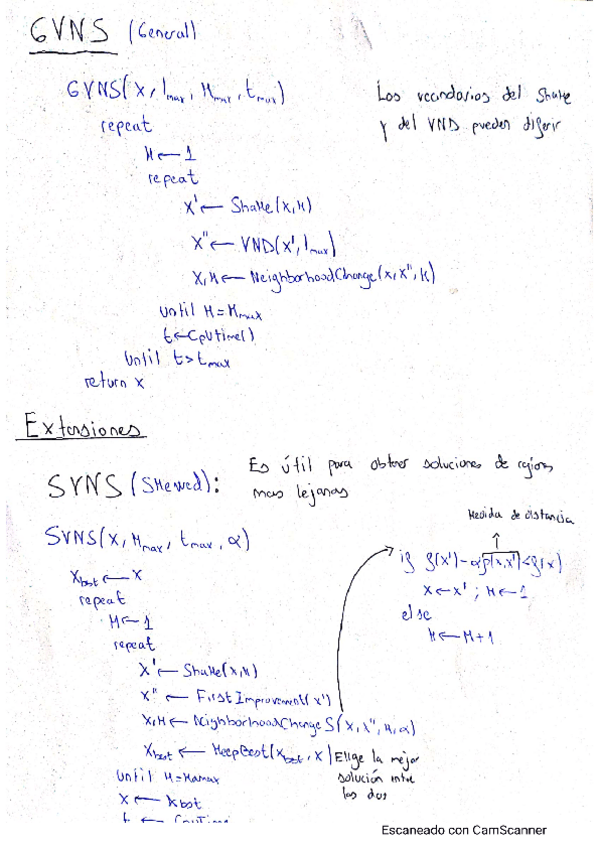 GVNS (General)
GVNS(x, lmax, kmax, tmax)
Los vecindarios del Shake
y del VND pueden diferir
repeat
k ← 1
repeat
x' ← Shake(x,k)
x'' ← VND(x', lmax)
x,k ← NeighborhoodChange(x,x'',k)
until k=kmax
t ← CpuTime()
until t>tmax
return x
Extensiones
SVNS (Skewed):
Es útil para obtener soluciones de regiones
mas lejanas
Medida de distancia
SVNS(x, kmax, tmax, α)
if f(x')-αρ(x,x')<f(x)
x ← x' ; k ← 1
else
k ← k+1
xbest ← x
repeat
k ← 1
repeat
x' ← Shake(x,k)
x'' ← FirstImprovement(x')
x,k ← NeighborhoodChangeS(x,x'',k,α)
xbest ← KeepBest(xbest, x)
Elige la mejor
solución entre
los dos
until k=kmax
x ← xbest
Escaneado con CamScanner